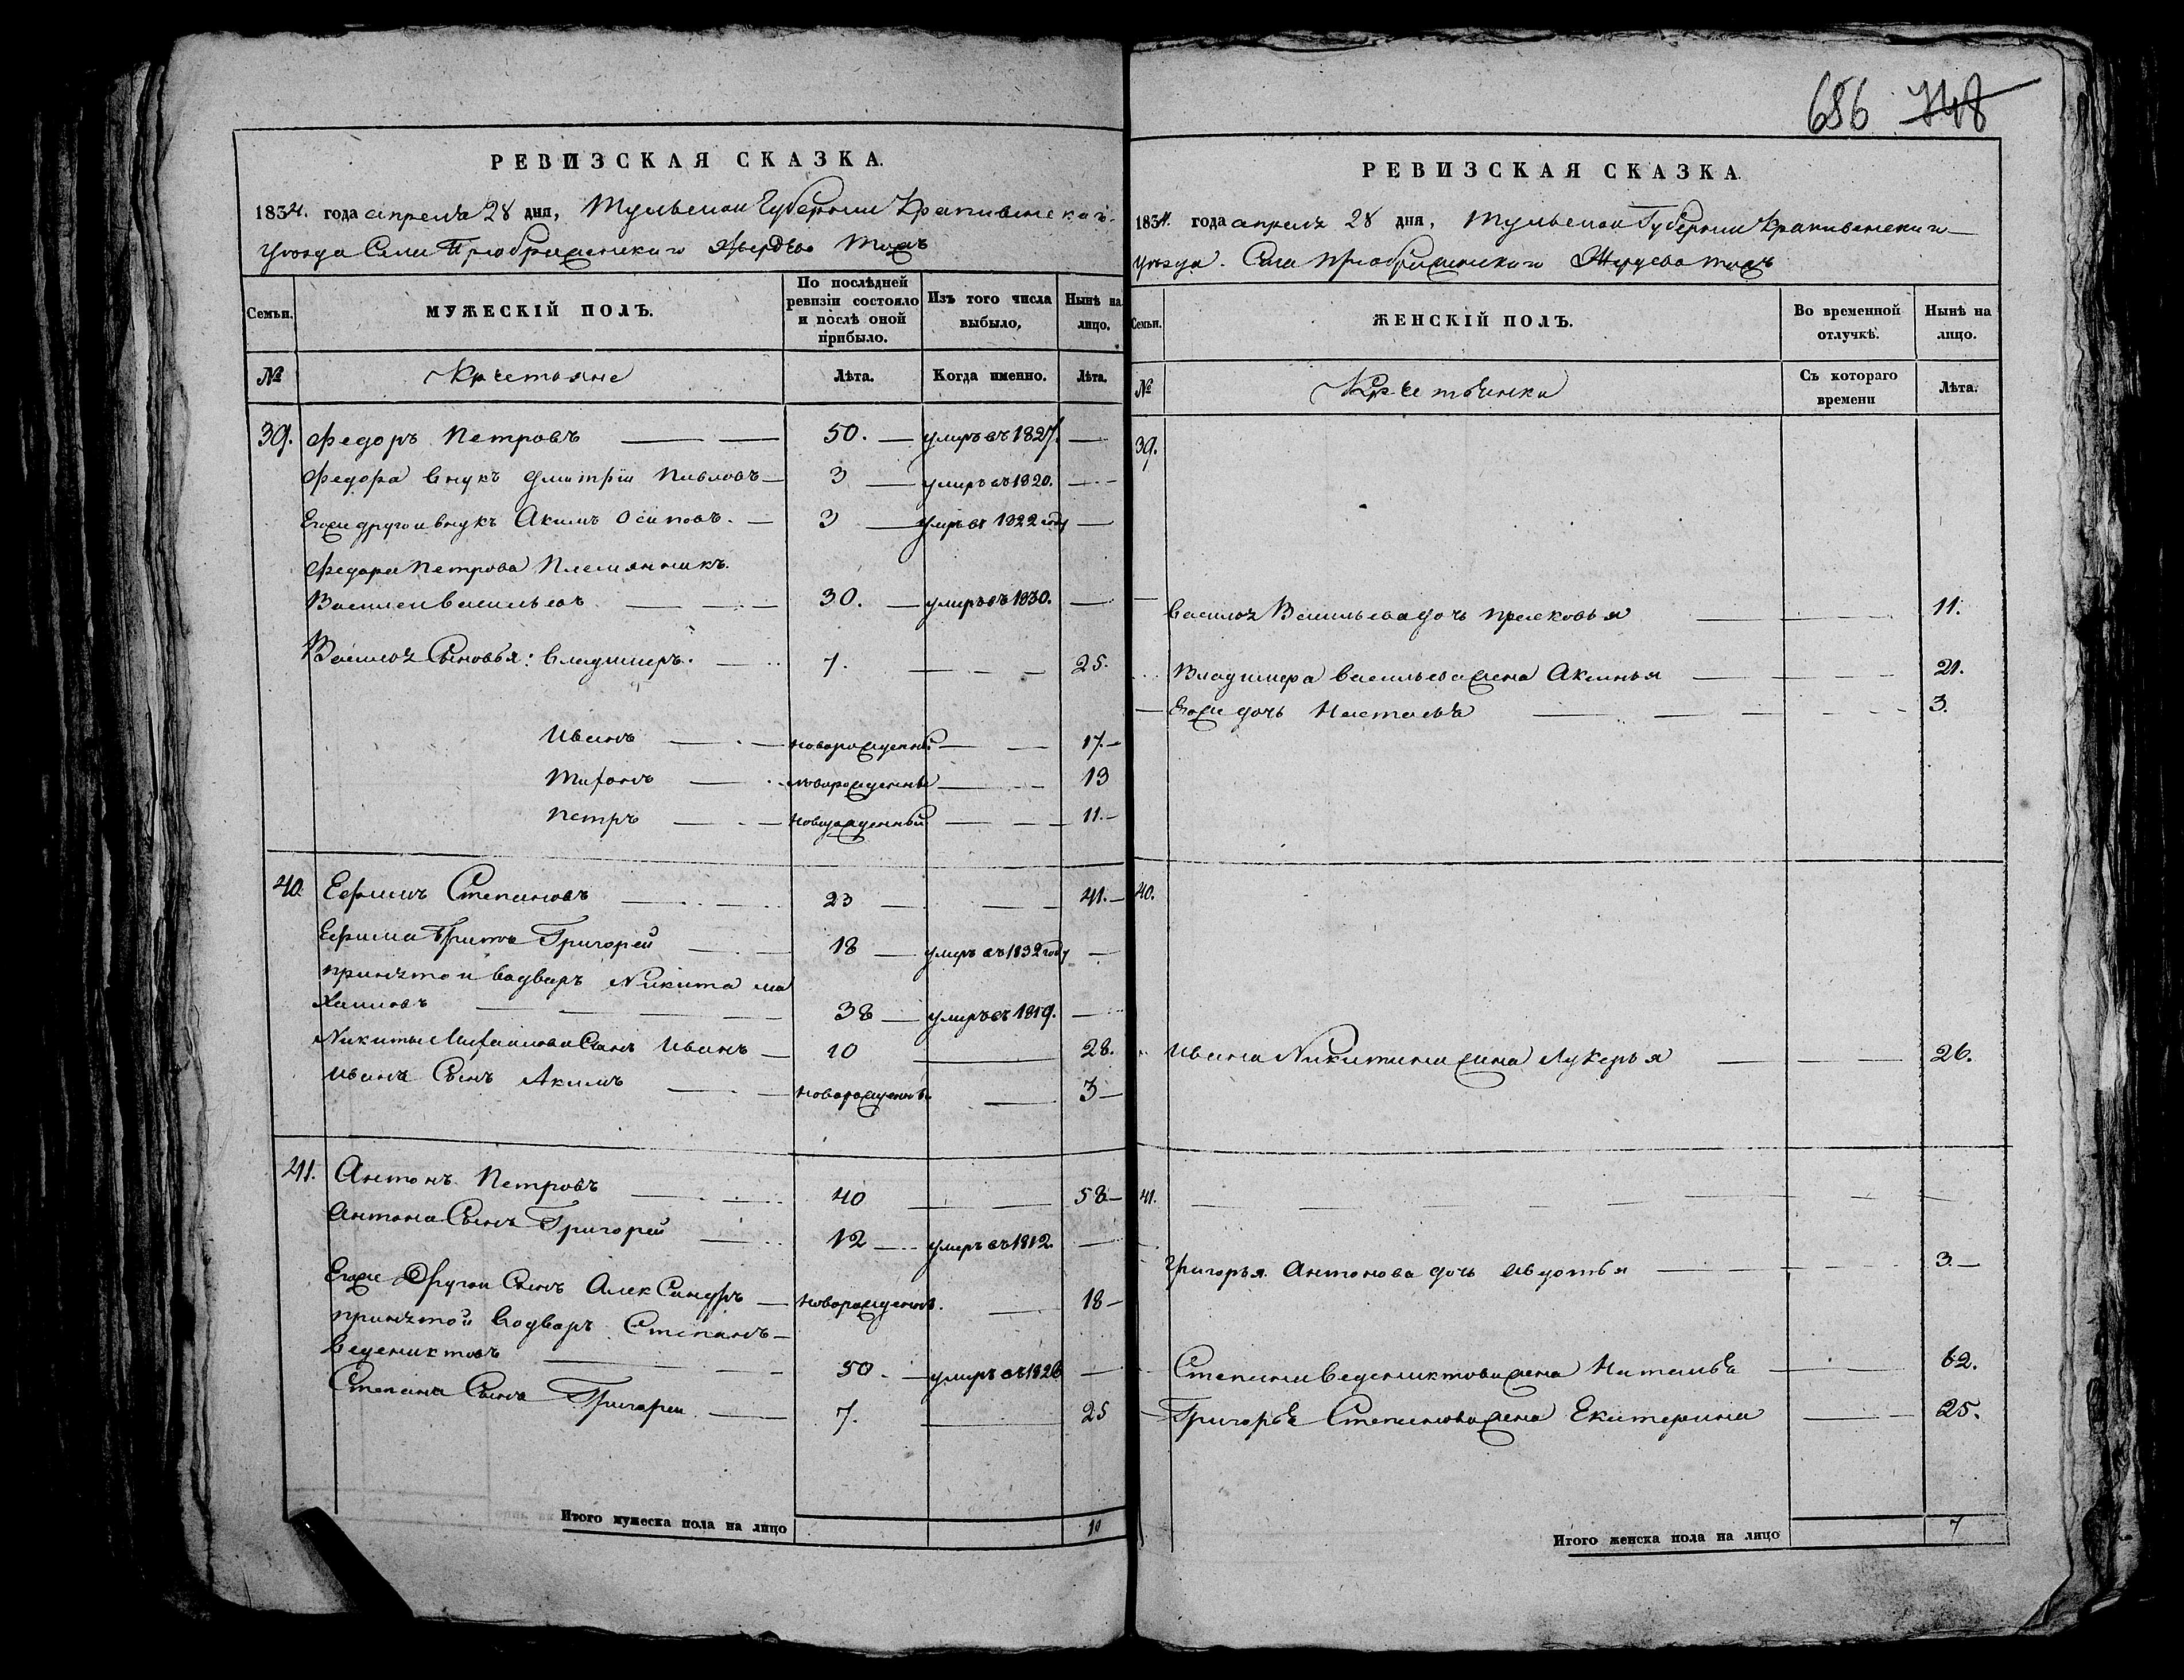 РЕВИЗСКАЯ СКАЗКА.
1834. года апреля 28 дня, Тульской Губернии Крапивенскаго
Уезда Села Преображенскаго тожъ
Семьи. МУЖЕСКІЙ ПОЛЪ. По послѣдней ревизіи состояло и послѣ оной прибыло. Изъ того числа выбыло. Нынѣ на лицо.
№ Крестьяне Лѣта. Когда именно. Лѣта.
39. Федоръ Петровъ 50. умеръ въ 1827.
Федора внукъ Дмитрій Павловъ 3 умеръ въ 1820.
Егоже другои внукъ Акимъ Осиповъ. 3 умеръ въ 1822 году
Федора Петрова Племянникъ.
Василеи Васильевъ 30. умеръ въ 1830.
Василья Сыновья: Владимеръ. 7. 25.
Иванъ новорожденны 17.
Тифонъ новорожденны 13
Петръ новорожденный 11.
40. Ефимъ Степановъ 23 41.
Ефима братъ Григорей 18 умеръ въ 1832 году
принятои водворъ Никита ми
хаиловъ 38 умеръ въ 1819.
Никиты Михаилова Сынъ Иванъ 10 28.
Ивана Сынъ Акимъ новорожденны 3
41. Антонъ Петровъ 40 58
Антона Сынъ Григорей 12 умеръ въ 1812.
Егоже Другои Сынъ АлекСандръ новорожденны. 18
принятои водворъ Степанъ
Ведениктовъ 50. умеръ въ 1826
Степана Сынъ Григореи 7. 25
Итого мужеска пола на лицо 10
686 748
РЕВИЗСКАЯ СКАЗКА.
1834. года апреля 28 дня, Тульской Губернии Крапивенскаго
уезда. Села преображенскаго тожъ
Семьи. ЖЕНСКІЙ ПОЛЪ. Во временной отлучкѣ. Нынѣ на лицо.
№ Съ котораго времени Лѣта.
39.
Василья Васильева дочь прасковья 11.
Владимера васильева жена Аксинья 21.
Егоже дочь Настасья 3.
40.
Ивана Никитина жена Лукерья 26.
41.
Григорья Антонова дочь Авдотья 3.
Степана Ведениктова жена Наталья 62.
Григорья Степанова жена Екатерина 25.
Итого женска пола на лицо 7